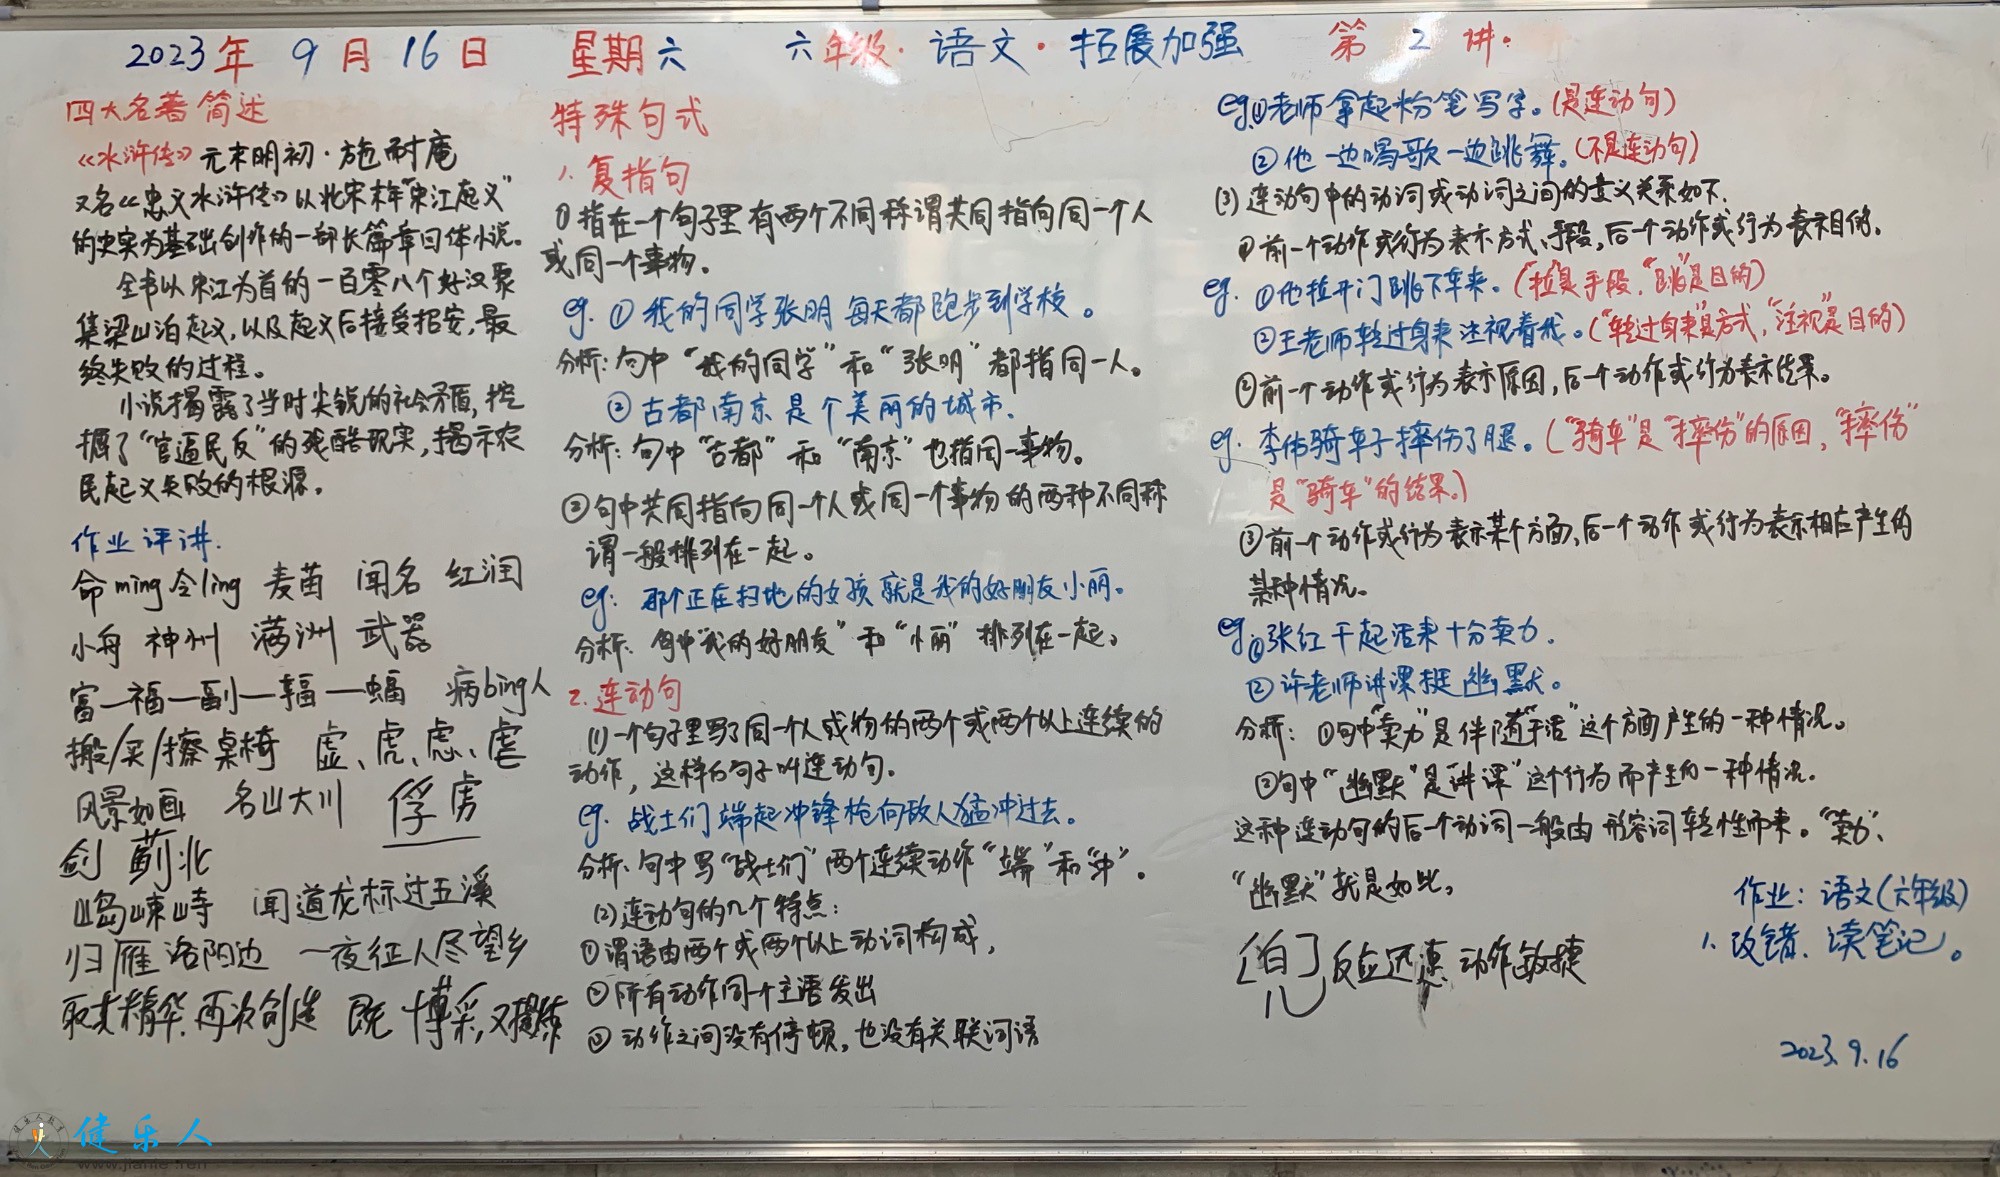 2023年 9月16日 星期六 六年级·语文·拓展加强 第2讲·
四大名著简述
《水浒传》元末明初·施耐庵
又名《忠义水浒传》以北宋末年"宋江起义"
的史实为基础创作的一部长篇章回体小说。
全书以宋江为首的一百零八个好汉聚
集梁山泊起义,以及起义后接受招安,最
终失败的过程。
小说揭露了当时尖锐的社会矛盾,控
掘了"官逼民反"的残酷现实,揭示农
民起义失败的根源。
作业评讲.
命mìng令lìng 麦苗 闻名 红润
小舟 神州 满洲 武器
富—福—副—辐—蝠 病bìng人
搬/买/擦桌椅 虚、虎、虑、虐
风景如画 名山大川 俘虏
剑 蓟北
山岛竦峙 闻道龙标过五溪
归雁洛阳边 一夜征人尽望乡
取其精华.再次创造 既博采,又提炼
特殊句式
1.复指句
①指在一个句子里有两个不同称谓共同指向同一个人
或同一个事物。
eg.①我的同学张明每天都跑步到学校。
分析:句中"我的同学"和"张明"都指同一人。
②古都南京是个美丽的城市.
分析:句中"古都"和"南京"也指同一事物。
②句中共同指向同一个人或同一个事物的两种不同称
谓一般排列在一起。
eg:那个正在扫地的女孩就是我的好朋友小丽。
分析:句中"我的好朋友"和"小丽"排列在一起。
2.连动句
(1)一个句子里写了同一个人或物的两个或两个以上连续的
动作,这样的句子叫连动句。
eg.战士们端起冲锋枪向敌人猛冲过去。
分析:句中写"战士们"两个连续动作"端"和"冲"。
(2)连动句的几个特点:
①谓语由两个或两个以上动词构成,
②所有动作同一个主语发出
③动作之间没有停顿,也没有关联词语
eg.①老师拿起粉笔写字。(是连动句)
②他一边唱歌一边跳舞。(不是连动句)
(3)连动句中的动词或动词之间的意义关系如下.
①前一个动作或行为表示方式、手段,后一个动作或行为表示目的.
eg.①他拉开门跳下车来。("拉"是手段,"跳"是目的)
②王老师转过身来注视着我。("转过身来"是方式,"注视"是目的)
②前一个动作或行为表示原因,后一个动作或行为表示结果。
eg.李伟骑车子摔伤了腿。("骑车"是"摔伤"的原因,"摔伤"
是"骑车"的结果。)
③前一个动作或行为表示某个方面,后一个动作或行为表示相应产生的
某种情况。
eg.①张红干起活来十分卖力.
②许老师讲课挺幽默。
分析:①句中"卖力"是伴随"干活"这个方面产生的一种情况。
②句中"幽默"是"讲课"这个行为而产生的一种情况.
这种连动句的后一个动词一般由形容词转性而来。"卖力"、
"幽默"就是如此。
反应迅速 动作敏捷
作业:语文(六年级)
1.改错、读笔记。
2023.9.16
健乐人